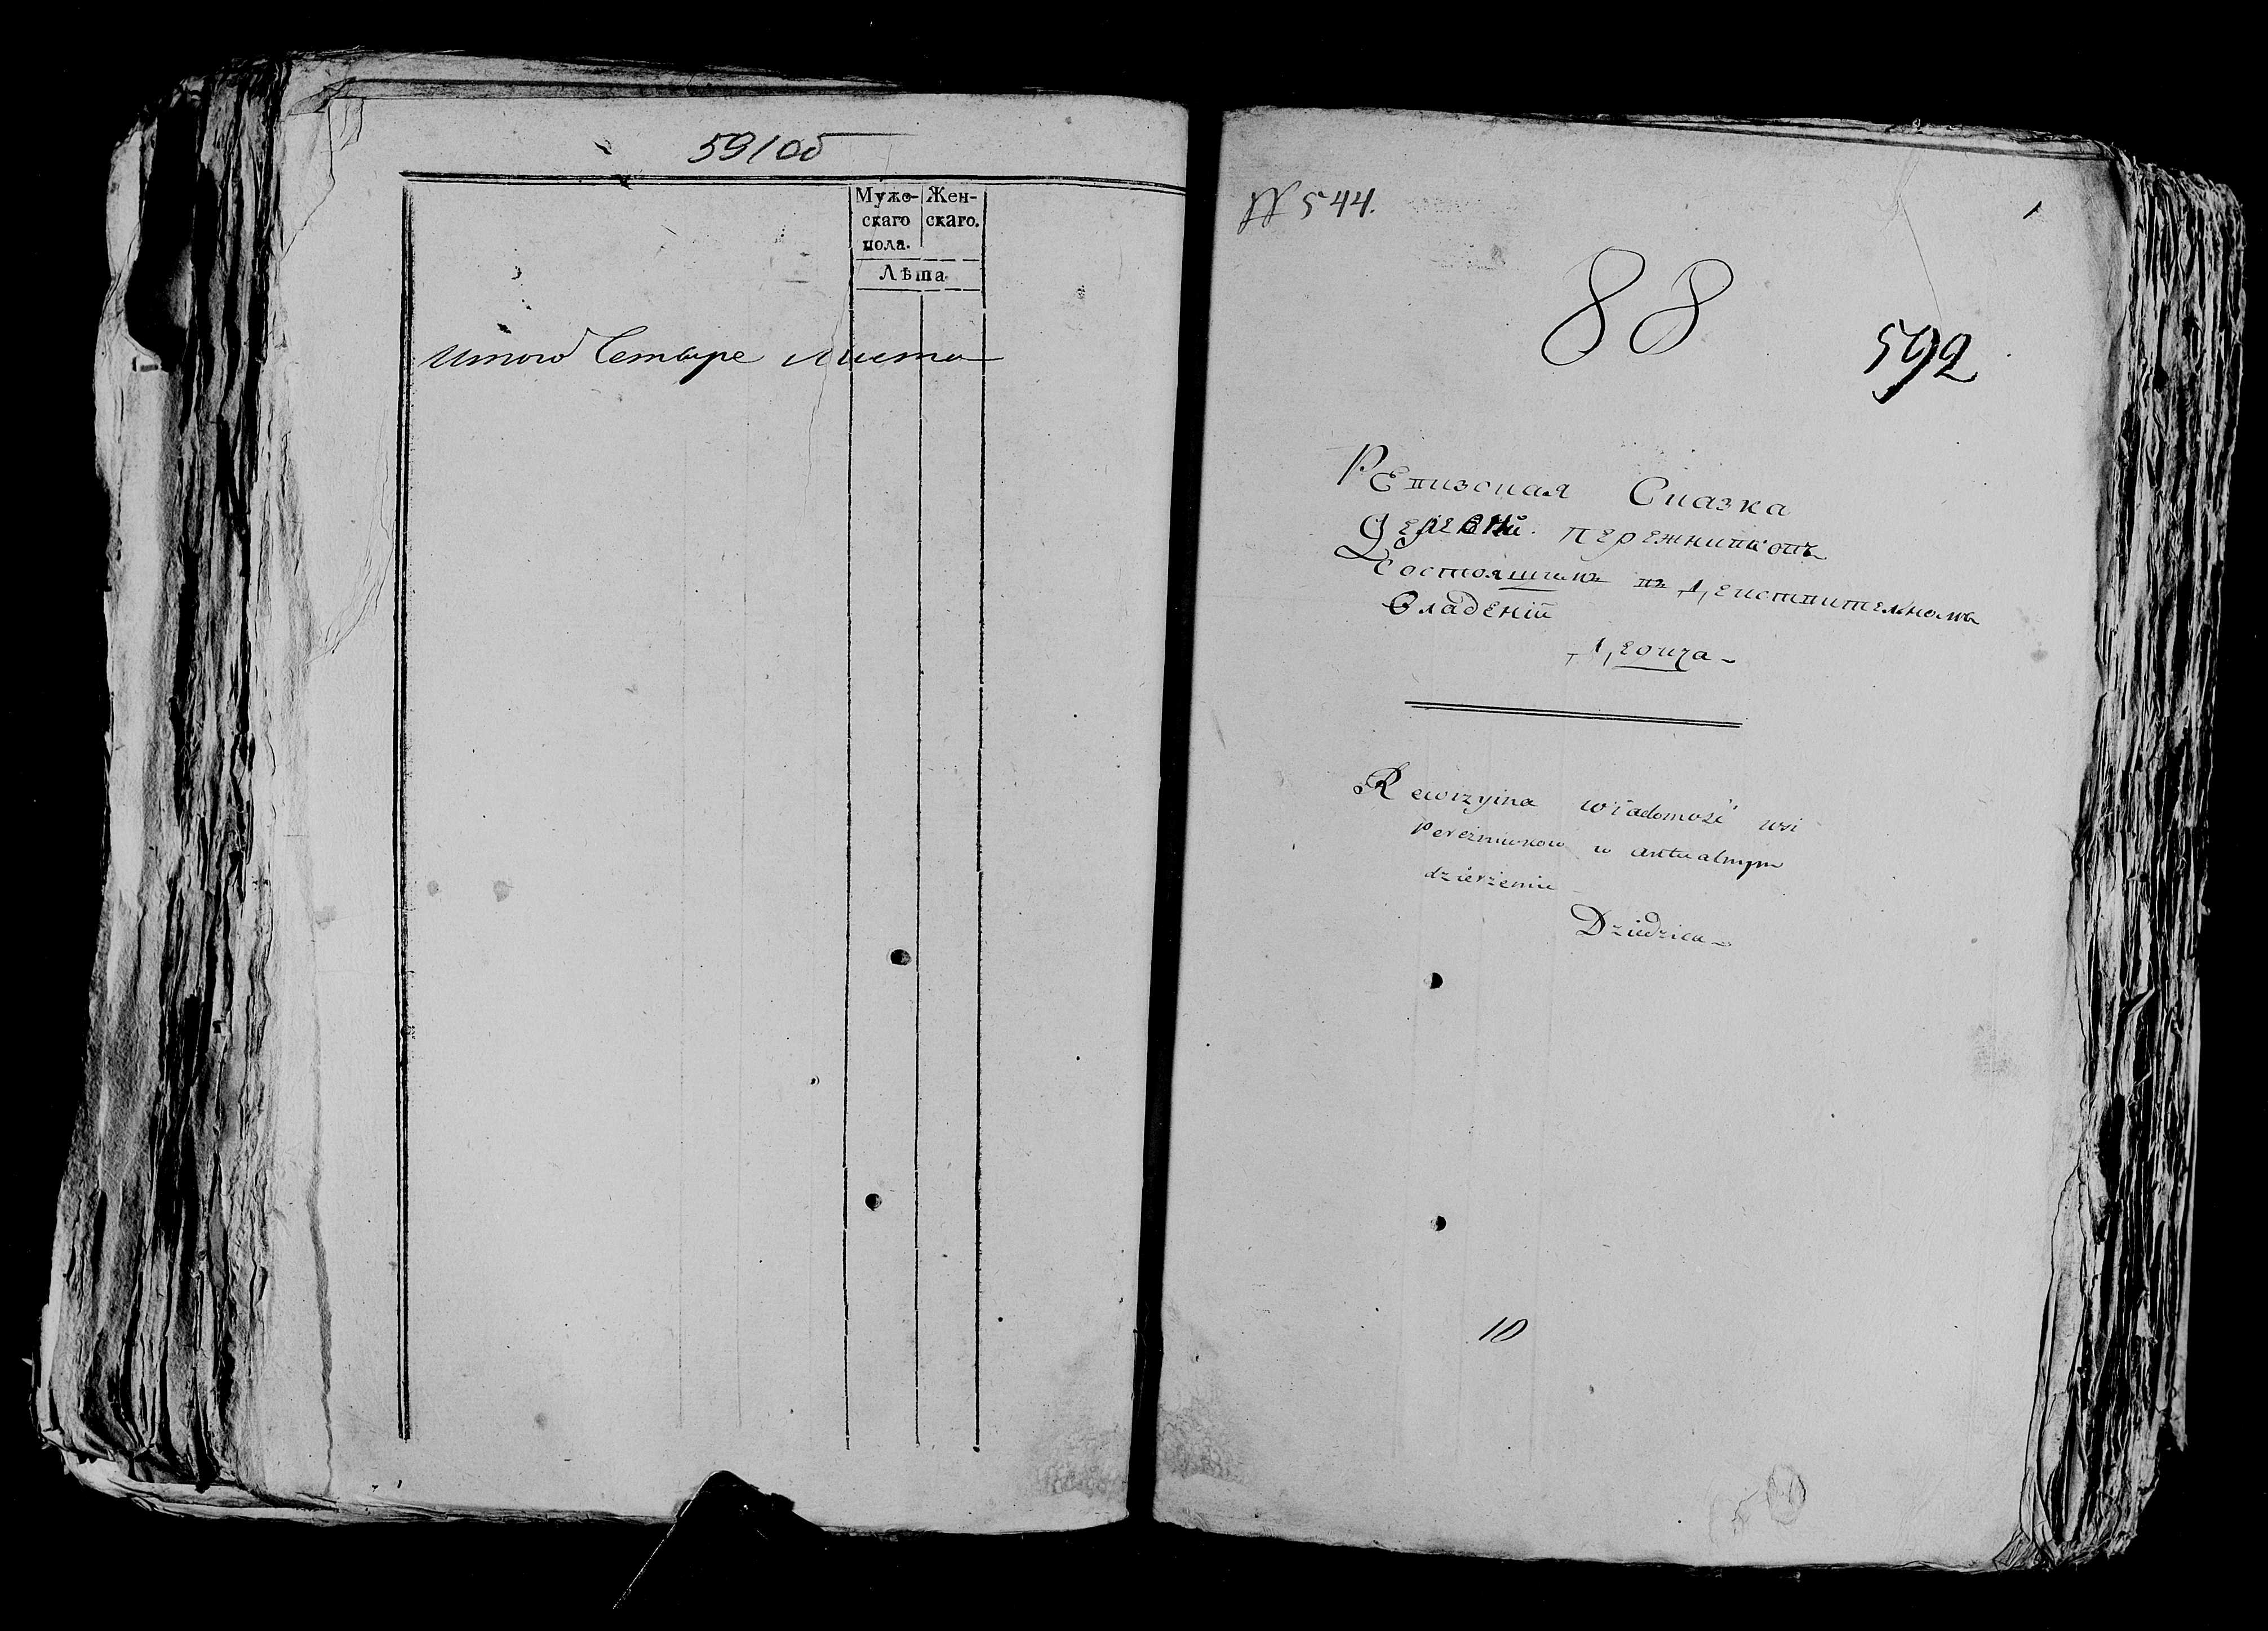 591об
Мужескаго пола.
Женскаго.
Лѣта
Итого Четыре листа
№ 544.
88
592
Ревизская Сказка
Деревни Пережников
Состоящимъ въ Деиствителномъ
Владении
Дедица
Rewizyina wiadomość wsi
Pereżnikow w aktualnym
dzierżeniu
Dziedzica
10